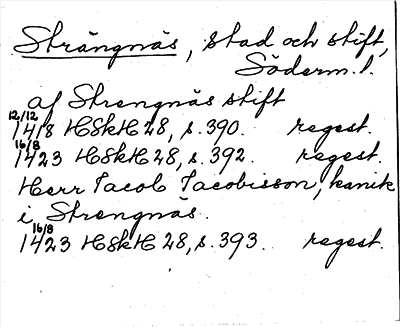 Strängnäs, stad och stift,
Söderm.l.
af Strengnäs stift
12/12 1418 HSkH 28, s. 390. regest.
16/8 1423 HSkH 28, s. 392. regest.
Herr Jacob Jacobisson, kanik
i Strengnäs.
16/8 1423 HSkH 28, s. 393. regest.